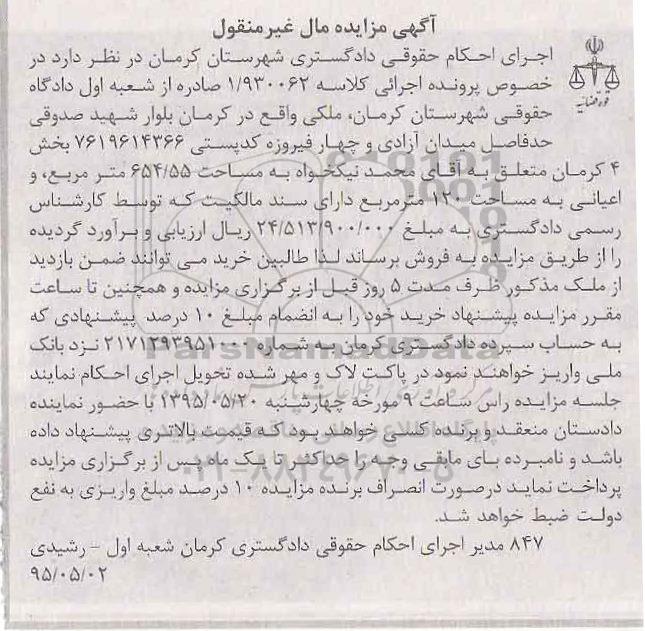 آگهی مزایده مال غیرمنقول
اجرای احکام حقوقی دادگستری شهرستان کرمان در نظر دارد در
خصوص پرونده اجرائی کلاسه ۱/۹۳۰۰۶۲ صادره از شعبه اول دادگاه
حقوقی شهرستان کرمان، ملکی واقع در کرمان بلوار شهید صدوقی
حدفاصل میدان آزادی و چهار فیروزه کدپستی ۷۶۱۹۶۱۴۳۶۶ بخش
۴ کرمان متعلق به آقای محمد نیکخواه به مساحت ۶۵۴/۵۵ متر مربع، و
اعیانی به مساحت ۱۲۰ مترمربع دارای سند مالکیت که توسط کارشناس
رسمی دادگستری به مبلغ ۲۴/۵۱۳/۹۰۰/۰۰۰ ریال ارزیابی و برآورد گردیده
را از طریق مزایده به فروش برساند لذا طالبین خرید می توانند ضمن بازدید
از ملک مذکور ظرف مدت ۵ روز قبل از برگزاری مزایده و همچنین تا ساعت
مقرر مزایده پیشنهاد خرید خود را به انضمام مبلغ ۱۰ درصد پیشنهادی که
به حساب سپرده دادگستری کرمان به شماره ۲۱۷۱۲۹۳۹۵۱۰۰۰ نزد بانک
ملی واریز خواهند نمود در پاکت لاک و مهر شده تحویل اجرای احکام نمایند
جلسه مزایده راس ساعت ۹ مورخه چهارشنبه ۱۳۹۵/۰۵/۲۰ با حضور نماینده
دادستان منعقد و برنده کسی خواهد بود که قیمت بالاتری پیشنهاد داده
باشد و نامبرده بای مابقی وجه را حداکثر تا یک ماه پس از برگزاری مزایده
پرداخت نماید درصورت انصراف برنده مزایده ۱۰ درصد مبلغ واریزی به نفع
دولت ضبط خواهد شد.
۸۴۷ مدیر اجرای احکام حقوقی دادگستری کرمان شعبه اول - رشیدی
۹۵/۰۵/۰۲
قوه قضائیه
ParsNamadData